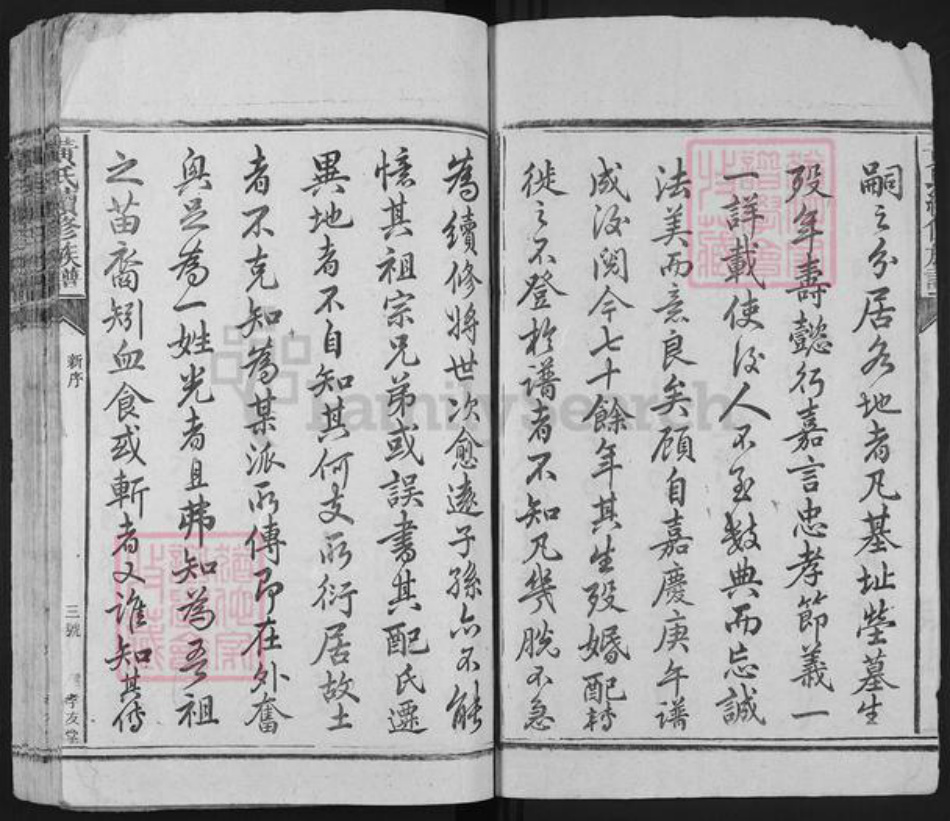 嗣之分居各地者凡基址塋墓生
歿年壽懿行嘉言忠孝節義一
一詳載使後人不至數典而忘誠
法美而意良矣顧自嘉慶庚午譜
成後閱今七十餘年其生歿婚配轉
徙之不登於譜者不知凡幾脫不急
為續修將世次愈遠子孫亦不能
憶其祖宗兄弟或誤書其配氏遷
異地者不自知其何支所衍居故土
者不克知為某派所傳即在外奮
興足為一姓光者且弗知為吾祖
之苗裔矧血食或斬者又誰知其傳
黃氏續修族譜
新序
三號
孝友堂
FamilySearch